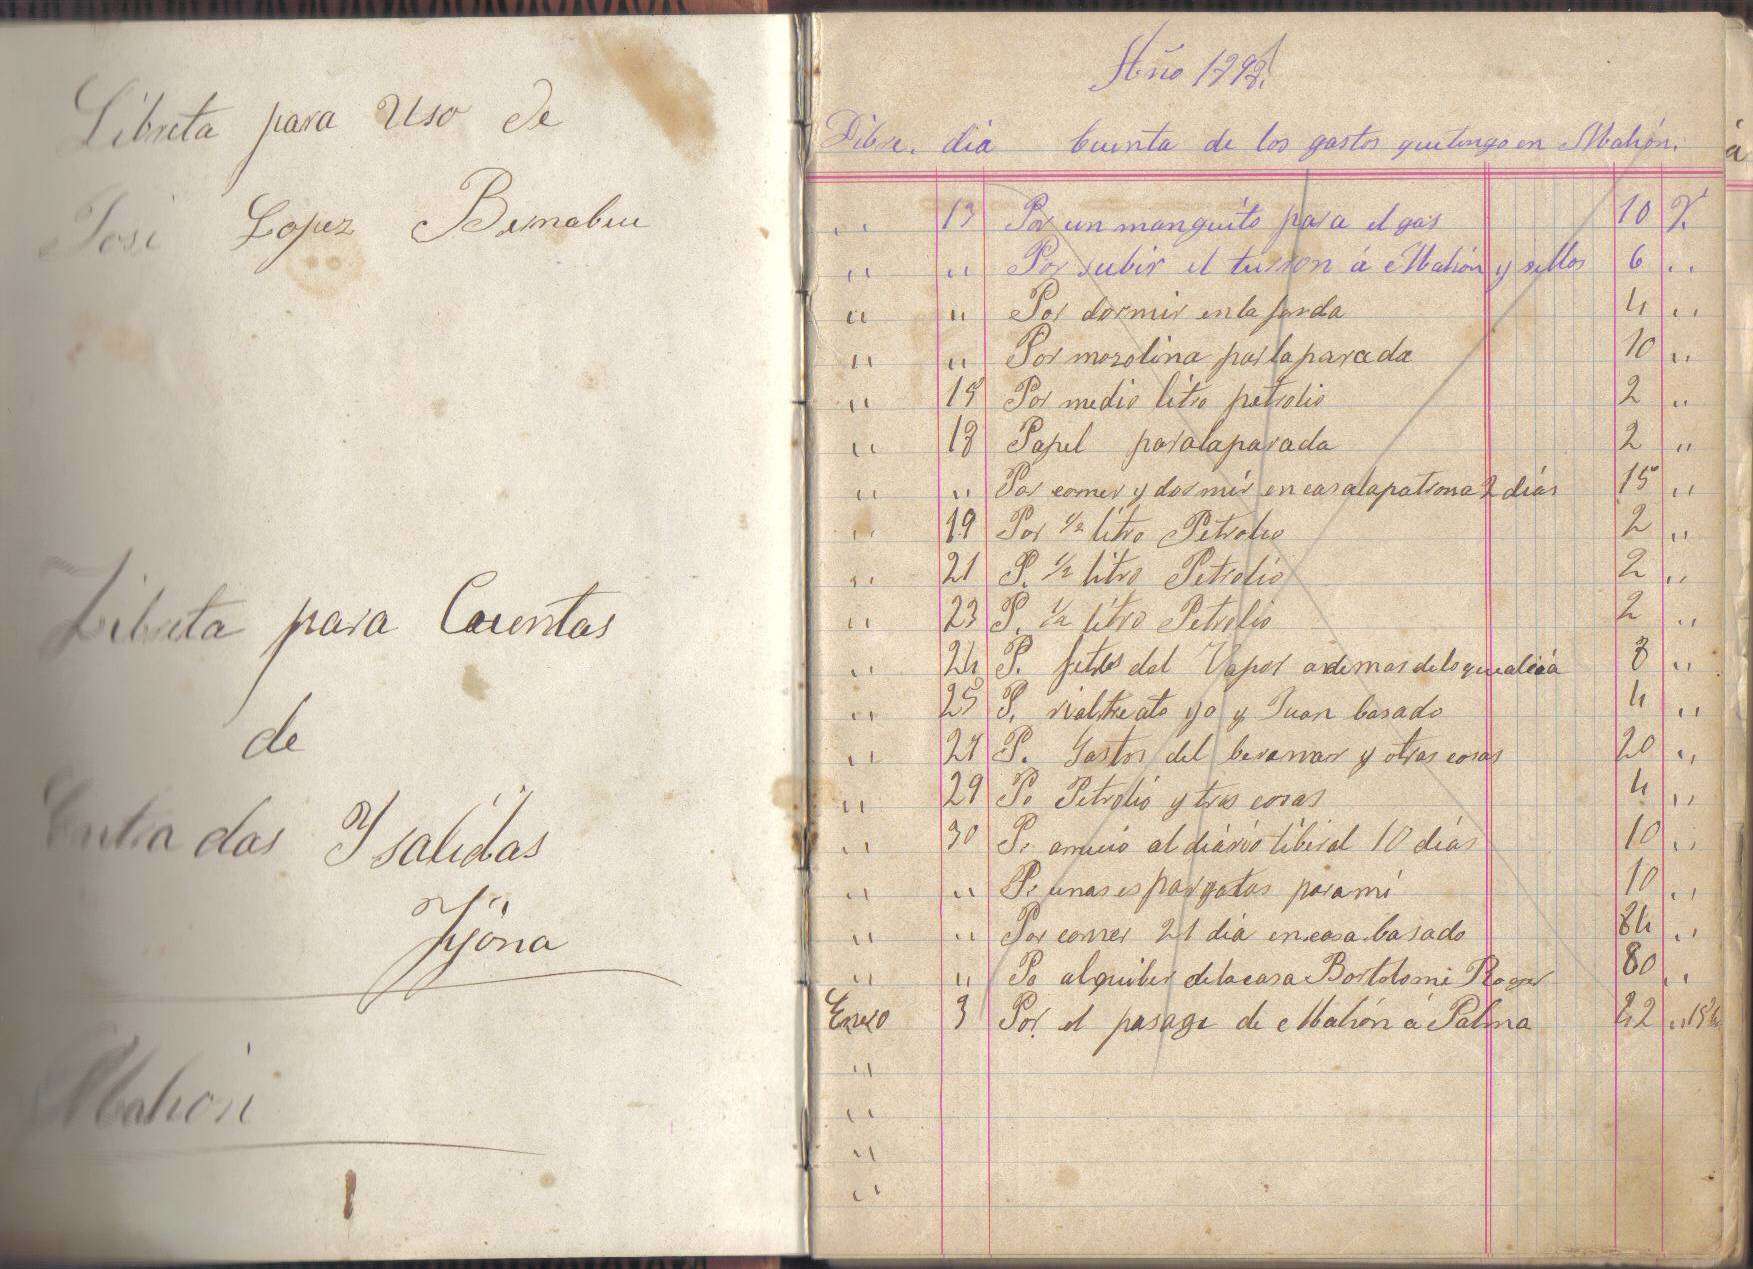 Libreta para Uso de
José Lopez Bernabeu
Libreta para Cuentas
de
Entradas Y salidas
Jijóna
Mahón
Año
Dibre. dia Cuenta de los gastos que tengo en Mahón.
,, 13 Por un manguito para el gas 10 R.
,, ,, Por subir el turron á Mahón y sellos 6 ,,
,, ,, Por dormir en la fonda 4 ,,
,, ,, Por mozolina par la parada 10 ,,
,, 15 Por medio litro petrolio 2 ,,
,, 18 Papel para la parada 2 ,,
,, ,, Por comer y dormir en casa la patrona 2 días 15 ,,
,, 19 Por 1/2 litro Petrolio 2 ,,
,, 21 P. 1/2 litro Petrolio 2 ,,
,, 23 P. 1/2 litro Petrolio 2 ,,
,, 24 P. del Vapor ademas de lo que 8 ,,
,, 25 P. yo y Juan basado 4 ,,
,, 27 P. Gastos del beramar y otras cosas 20 ,,
,, 29 P. Petrolio y tras cosas 4 ,,
,, 30 P. anucio al diário liberal 10 días 10 ,,
,, ,, P. unas espargatas para mí 10 ,,
,, ,, Por comer 21 dia en casa basado 84 ,,
,, ,, Po alquiler de la casa Bortolomé Roger 80 ,,
Enero 3 Por el pasage de Mahón á Palma 22 ,,
,,
,,
,,
,,
á